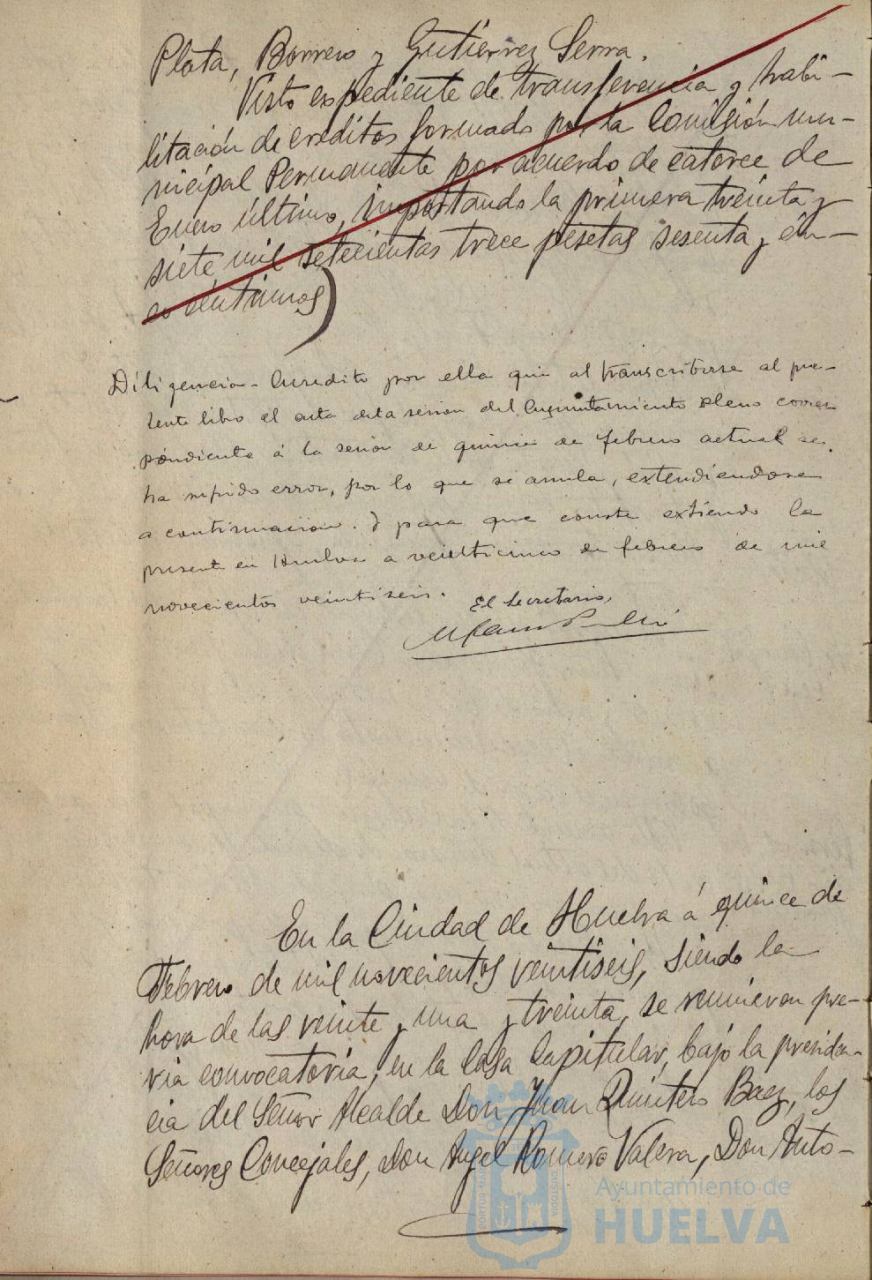 Plata, Borrero y Gutiérrez Serra.
Visto expediente de transferencia y habi-
litación de créditos formado por la Comisión mu-
nicipal Permanente por acuerdo de catorce de
Enero último, importando la primera treinta y
siete mil setecientas trece pesetas sesenta y cin-
co céntimos)
Diligencia - Acredito por ella que al transcribirse al pre-
sente libro el acta de la sesion del Ayuntamiento Pleno corres
pondiente á la sesion de quince de febrero actual se
ha sufrido error, por lo que se anula, extendiendose
a continuacion. Y para que conste extiendo la
presente en Huelva a veinticinco de febrero de mil
novecientos veintiseis.
El Secretario,
En la Ciudad de Huelva á quince de
Febrero de mil novecientos veintiseis, siendo la
hora de las veinte y una y treinta, se reunieron pre-
via convocatoria, en la Casa Capitular, bajo la presiden-
cia del Señor Alcalde Don Juan Quintero Baez, los
Señores Concejales, Don Angel Romero Valera, Don Anto-
Ayuntamiento de
HUELVA